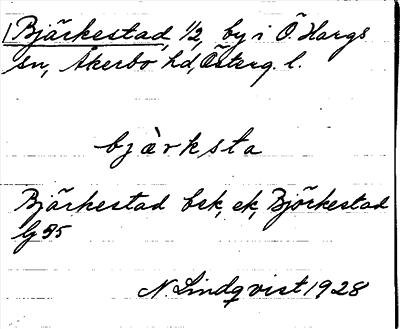 Bjärkestad, 1/2, by i Ö. Hargs
sn, Åkerbo hd, Österg. l.
bjàrksta
Bjärkestad bsk, ek, Björkestad
G 95
N. Lindqvist 1928